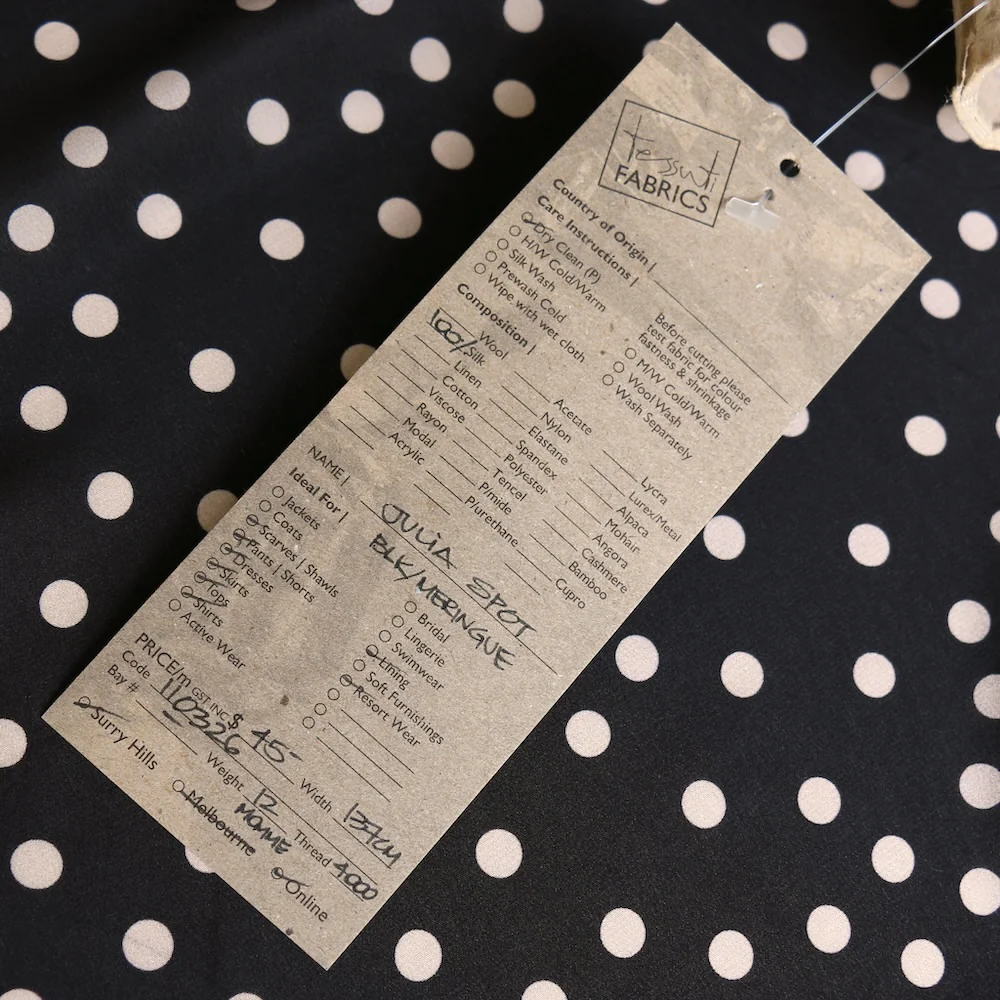 tessuti
FABRICS
Country of Origin |
Care Instructions |
Dry Clean (P)
H/W Cold/Warm
Silk Wash
Prewash Cold
Wipe with wet cloth
Before cutting please
test fabric for colour
fastness & shrinkage
M/W Cold/Warm
Wool Wash
Wash Separately
Composition |
Wool
100% Silk
Linen
Cotton
Viscose
Rayon
Modal
Acrylic
Acetate
Nylon
Elastane
Spandex
Polyester
Tencel
P/mide
P/urethane
Lycra
Lurex/Metal
Alpaca
Mohair
Angora
Cashmere
Bamboo
Cupro
NAME | JULIA SPOT
BLK/MERINGUE
Ideal For |
Jackets
Coats
Scarves | Shawls
Pants | Shorts
Dresses
Skirts
Tops
Shirts
Active Wear
Bridal
Lingerie
Swimwear
Lining
Soft Furnishings
Resort Wear
PRICE/m GST INC $ 45-
Width 137CM
Code 110326
Weight 12 MOMME
Thread 4000
Bay #
Surry Hills
Melbourne
Online